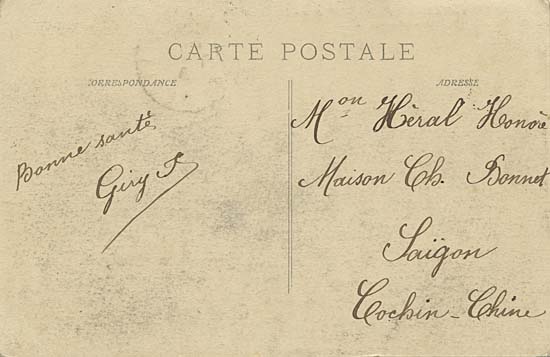 CARTE POSTALE
CORRESPONDANCE
ADRESSE
Bonne santé
Giry P
Mon Héral Honoré
Maison Ch. Bonnet
Saïgon
Cochin-Chine